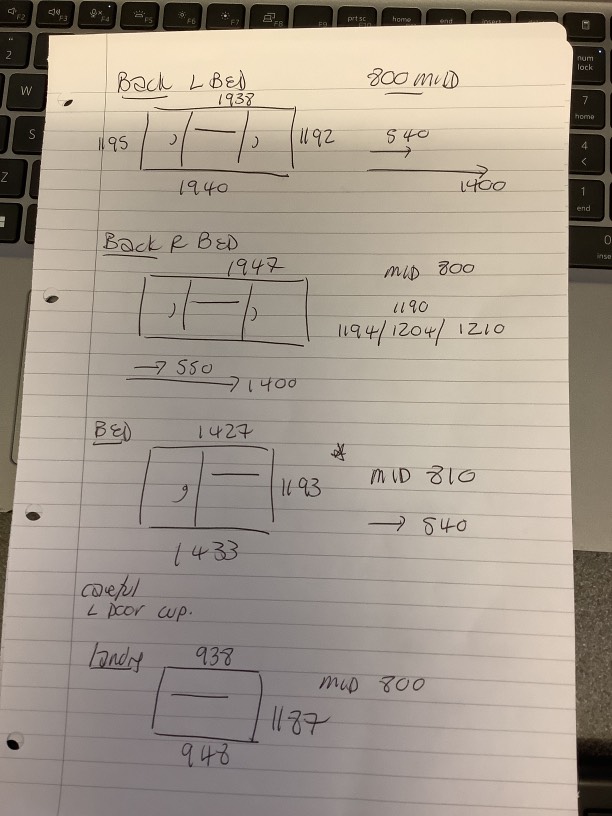 Back L BED
800 MID
1938
1195
1192
540
1940
1400
Back R BED
1947
MID 800
1190
1194/1204/1210
→ 550
→ 1400
BED
1427
1193
MID 810
→ 540
1433
careful
L Door cup.
landing
938
MID 800
1187
948
F2
F3
F4
F5
F6
F7
F8
F9
prt sc
F10
home
end
insert
2
W
S
Z
num
lock
7
home
4
<
1
end
0